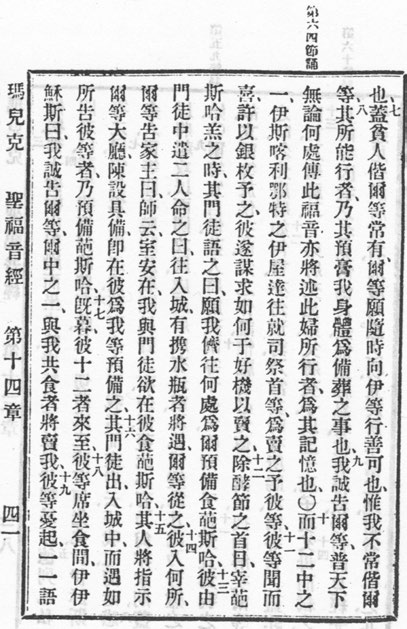 第六四節誦
七也蓋貧人偕爾等常有、爾等願隨時向伊等行善可也、惟我不常偕爾
等、八其所能行者、乃其預膏我身體爲備葬之事也、九我誠告爾等、普天下
無論何處傳此福音、亦將述此婦所行者、爲其記憶也〇十而十二中之
一、伊斯喀利鄂特之伊屋達、往就司祭首等、爲賣之予彼等、十一彼等聞而
喜、許以銀枚予之、彼遂謀求如何于好機以賣之、十二除酵節之首日、宰葩
斯哈羔之時、其門徒語之曰、願我儕往何處、爲爾預備食葩斯哈、十三彼由
門徒中遣二人、命之曰、往入城、有携水瓶者將遇爾等、從之、十四彼入何所、
爾等告家主曰、師云、室安在、我與門徒欲在彼食葩斯哈、十五其人將指示
爾等大廳陳設具備、卽在彼爲我等預備之、十六其門徒出、入城中、而遇如
所告彼等者、乃預備葩斯哈、十七旣暮、彼十二者來至、十八彼等席坐食間、伊伊
穌斯曰、我誠告爾等、爾中之一、與我共食者、將賣我、十九彼等憂起、一一語
瑪兒克 聖福音經 第十四章 四一